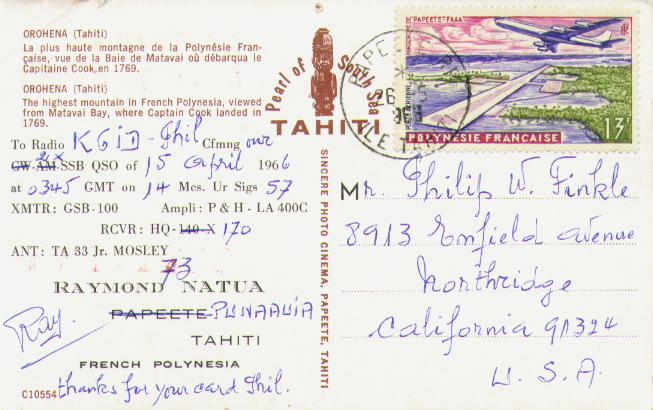 OROHENA (Tahiti)
La plus haute montagne de la Polynésie Fran-
çaise, vue de la Baie de Matavai où débarqua le
Capitaine Cook, en 1769.
OROHENA (Tahiti)
The highest mountain in French Polynesia, viewed
from Matavai Bay, where Captain Cook landed in
1769.
Pearl of South Sea
TAHITI
To Radio K6ID Phil Cfmng our
CW-AM-SSB QSO of 15 April 1966
at 0345 GMT on 14 Mcs. Ur Sigs 57
XMTR: GSB-100 Ampli: P & H - LA 400C
RCVR: HQ-140-X 170
ANT: TA 33 Jr. MOSLEY
73
RAYMOND NATUA
PAPEETE PUNAAUIA
Ray.
TAHITI
FRENCH POLYNESIA
C10554 thanks for your card Phil.
SINCERE PHOTO CINEMA, PAPEETE, TAHITI
AERODROME DE PAPEETE-FAAA
RF
POSTE AERIENNE
13F
POLYNESIE FRANÇAISE
26
ILE TAHITI
Mr. Philip W. Finkle
8913 Enfield avenue
Northridge
California 91324
U. S. A.